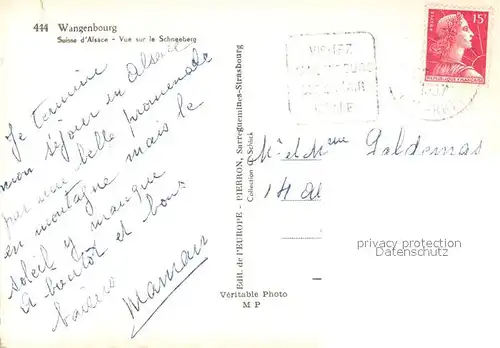 444 Wangenbourg
Suisse d'Alsace - Vue sur le Schneeberg
Je termine
mon séjour en Alsace
par une belle promenade
en montagne mais le
soleil y manque
à bientôt et bons
baisers
Maman
Edit. de l'EUROPE - PIERRON, Sarreguemines-Strasbourg
Collection G. Schek
Véritable Photo
M P
15F
POSTES
REPUBLIQUE FRANÇAISE
M. et Mme
14
privacy protection
Datenschutz